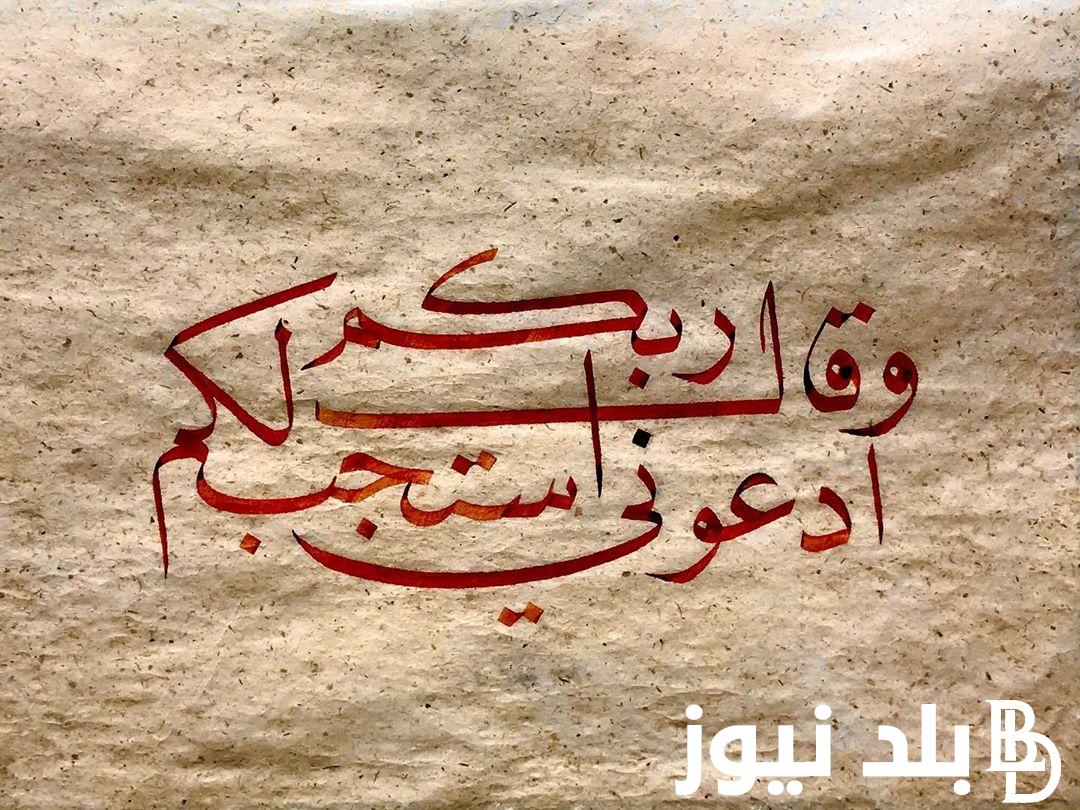 وقال ربكم
ادعوني استجب لكم
بلد نيوز BD